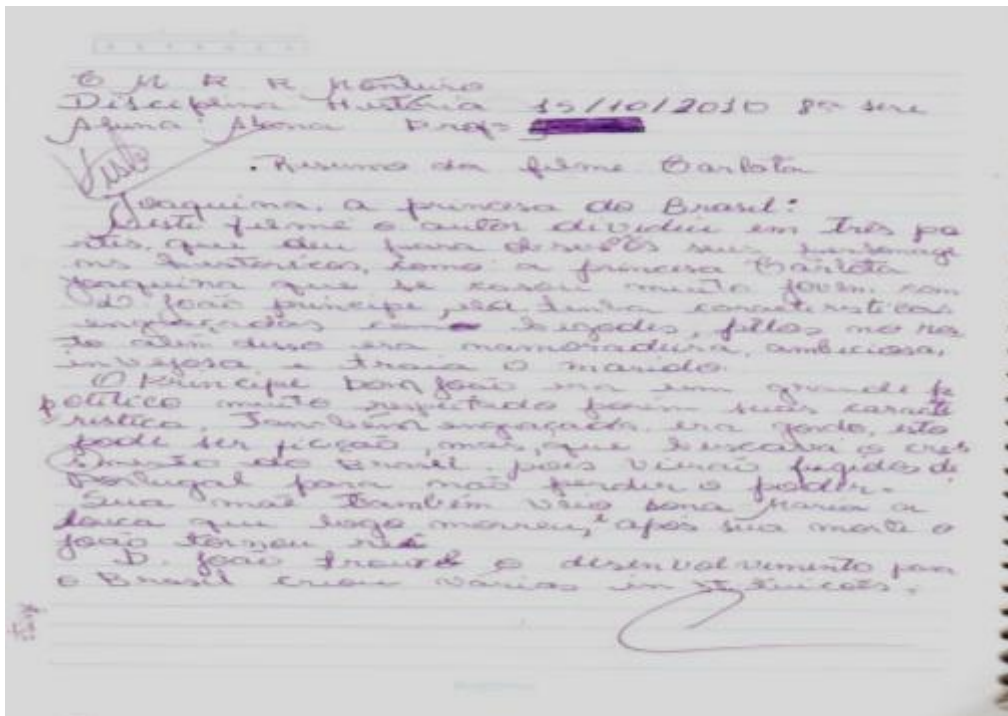 E M R R Monteiro
Disceplina História 15/10/2010 8ª sere
Aluna Profº
Visto
. Resumo do filme Carlota
Joaquina, a princesa do Brasil:
Neste filme o autor dividiu em três pa
rtes, que deu para seus personage
ns historicos, como a princesa Carlota
Joaquina que se casou muito jovem com
D. João principe, ela tinha caracteristicas
engraçadas com bigodes, pelos no ros
to além disso era namoradeira, ambiciosa,
invejosa e traia o marido.
O Principe Dom João era um grande
politico muito respeitado porem suas caracte
ristica, Também engaçada era gordo, isto
pode ser ficção, mais, que buscava o cres
do Brasil pois vierão fugidos de
Portugal para não perder o poder.
Sua mãe Também veio Dona Maria a
louca que logo morreu, e após sua morte o
João tornou rei
D. João trouxe o desenvolvimento para
o Brasil criou varias instituicoês.